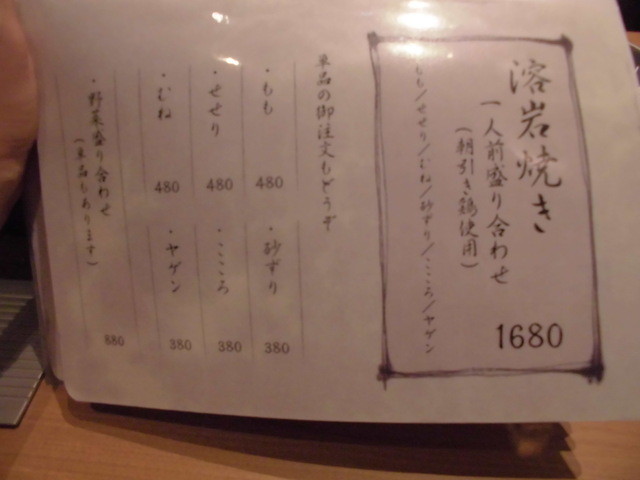 溶岩焼き
一人前盛り合わせ
(朝引き鶏使用)
1680
もも/せせり/むね/砂ずり/こころ/ヤゲン
単品の御注文もどうぞ
・もも 480
・砂ずり 380
・せせり 480
・こころ 380
・むね 480
・ヤゲン 380
・野菜盛り合わせ
(単品もあります) 880